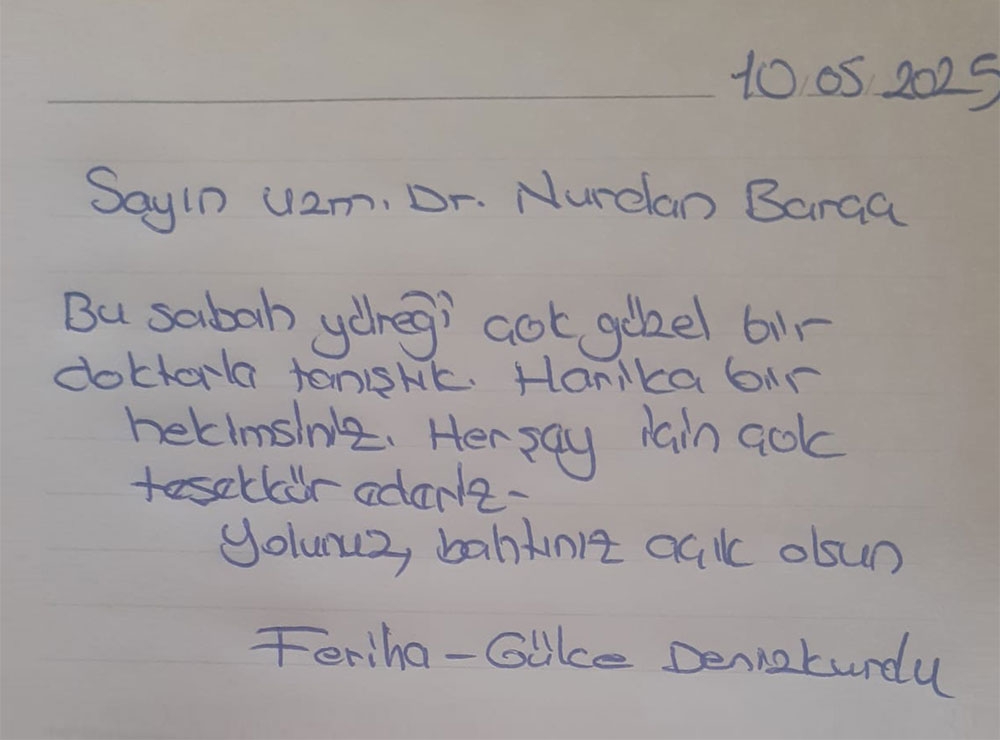 10.05.2025
Sayın uzm. Dr. Nurdan Barça
Bu sabah yüreği çok güzel bir
doktorla tanıştık. Harika bir
hekimsiniz. Her şey için çok
teşekkür ederiz-
Yolunuz, bahtınız açık olsun
Feriha-Gülce Denizkurdu